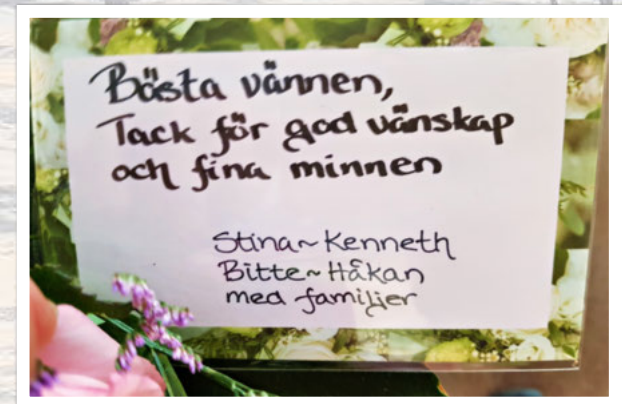 Bästa vännen,
Tack för god vänskap
och fina minnen
Stina~Kenneth
Bitte~Håkan
med familjer